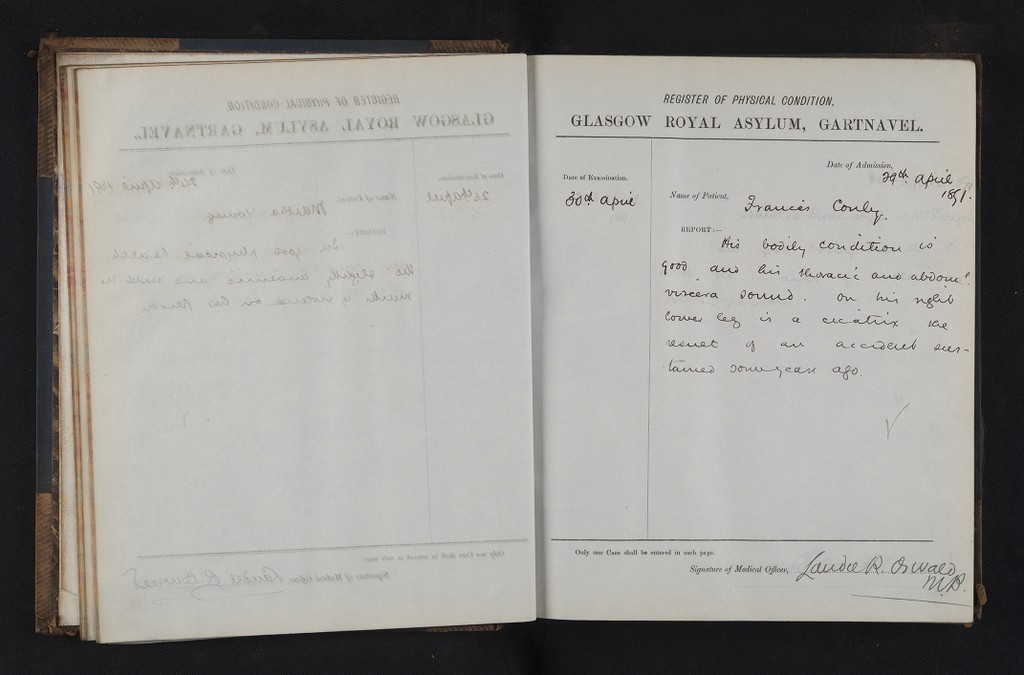 REGISTER OF PHYSICAL CONDITION,
GLASGOW ROYAL ASYLUM, GARTNAVEL.
Date of Admission,
29th April
1891.
Date of Examination.
30th April
Name of Patient,
Francis Conly.
REPORT:—
His bodily condition is
good and his thoracic and abdom:
viscera sound. On his right
lower leg is a cicatrix the
result of an accident sus-
tained some years ago.
Only one Case shall be entered in each page.
Signature of Medical Officer,
Landel R. Oswald
M.B.